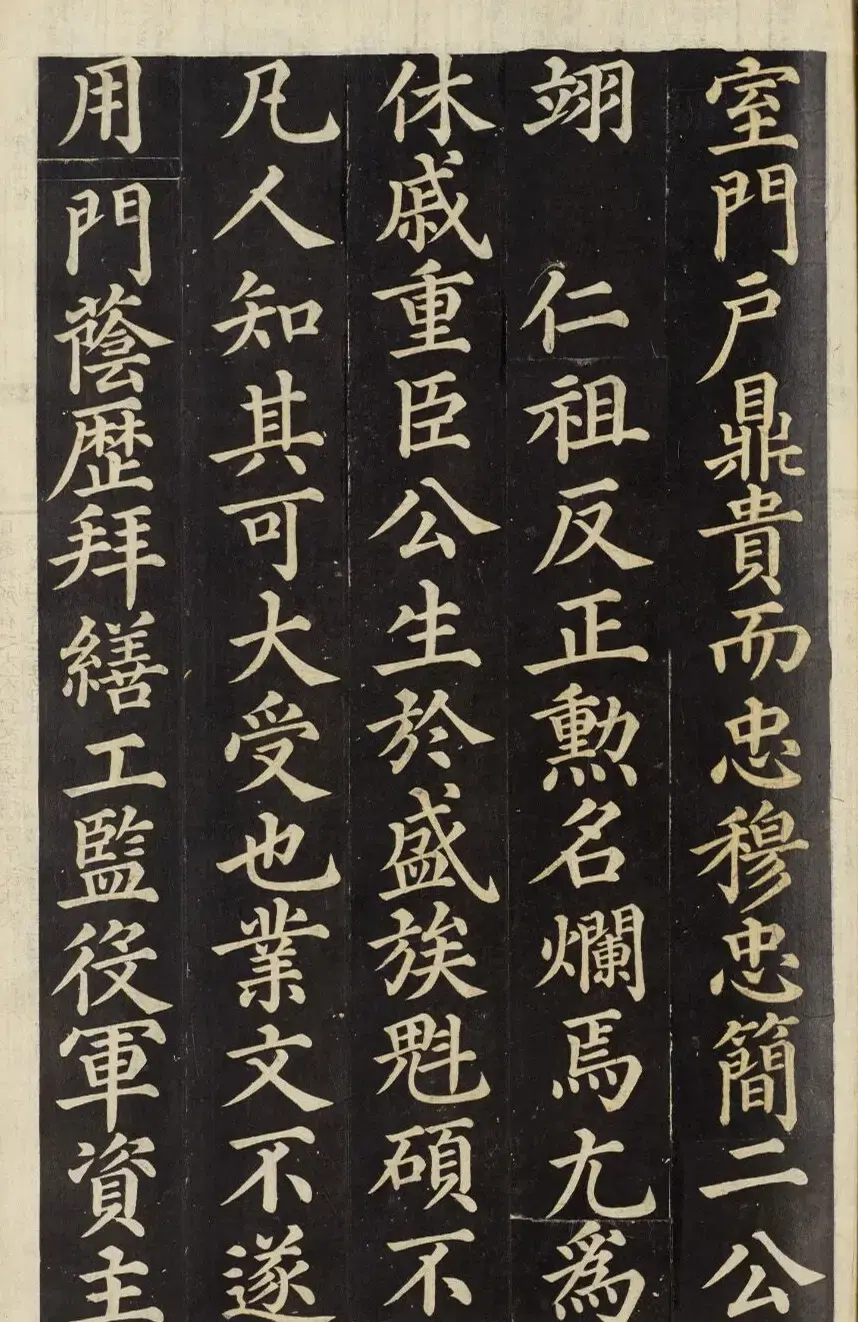 室門戶鼎貴而忠穆忠簡二公
翊仁祖反正勳名爛焉尢爲
休戚重臣公生於盛族魁碩不
凡人知其可大受也業文不遂
用門蔭歷拜繕工監役軍資主